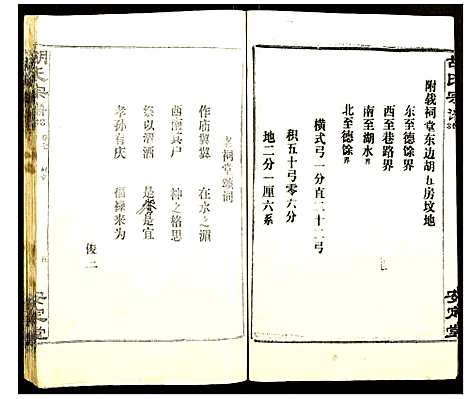 胡氏宗谱
附载祠堂东边胡五房坟地
东至德馀界
西至巷路界
南至湖水界
北至德馀界
横弌弓一分直二十二弓
积五十弓零六分
地二分一厘六系
安定堂
祠堂颂词
作庙翼翼 在水之湄
酉 其户 神之格思
祭以清酒 是 是宜
孝孙有庆 福禄来为
俊二
胡氏宗谱
安定堂